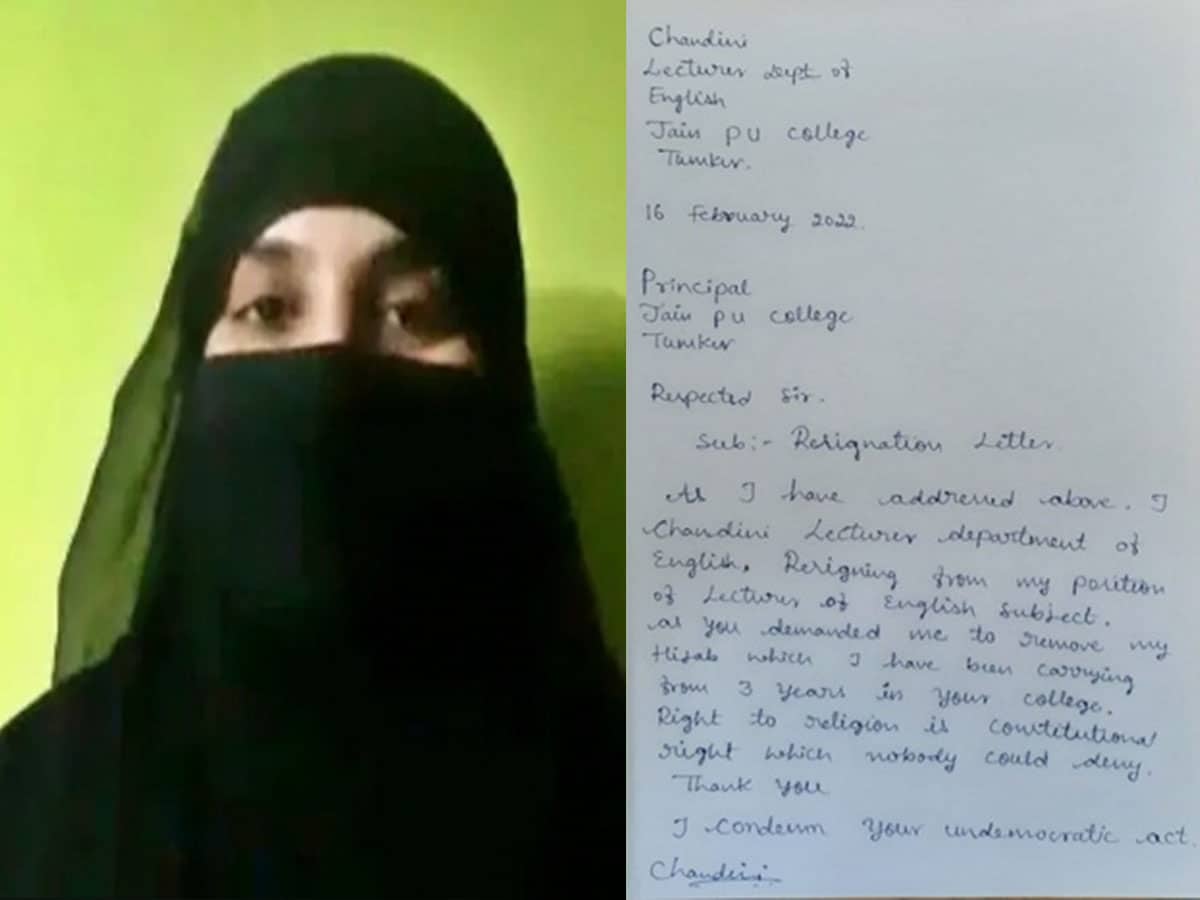 Chandini
Lecturer Dept of
English
Jain PU college
Tumkur.
16 February 2022.
Principal
Jain PU college
Tumkur
Respected Sir.
Sub:- Resignation Letter
As I have addressed above. I
Chandini Lecturer department of
English. Resigning from my position
of Lecturer of English Subject.
as you demanded me to remove my
Hijab which I have been carrying
from 3 years in your college.
Right to religion is constitutional
right which nobody could deny.
Thank you
I condemn your undemocratic act.
Chandini